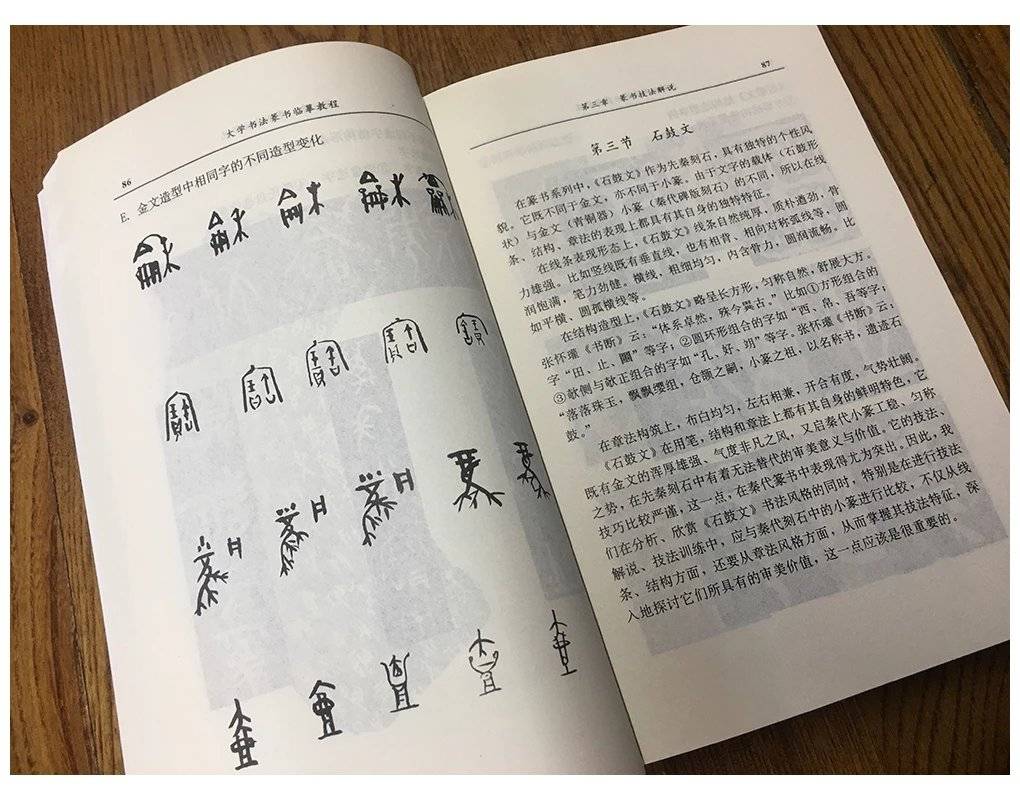 大学书法篆书临摹教程
86
E. 金文造型中相同字的不同造型变化
87
第三章 篆书技法解说
第三节 石鼓文
在篆书系列中，《石鼓文》作为先秦刻石，具有独特的个性风
貌。它既不同于金文，亦不同于小篆。由于文字的载体（石鼓形
状）与金文（青铜器）小篆（秦代碑版刻石）的不同，所以在线
条、结构、章法的表现上都具有其自身的独特特征。
在线条表现形态上，《石鼓文》线条自然纯厚，质朴遒劲，骨
力雄强。比如竖线既有垂直线，也有相背、相向对称弧线等，圆
润饱满，笔力劲健。横线，粗细均匀，内含骨力，圆润流畅。比
如平横、圆弧横线等。
在结构造型上，《石鼓文》略呈长方形，匀称自然，舒展大方。
张怀瓘《书断》云：“体系卓然，殊今异古。”比如①方形组合的
字“田、止、
”等字；②圆环形组合的字如“西、帛、吾等字；
③欹侧与欹正组合的字如“孔、好、
”等字。张怀瓘《书断》云：
“落落珠玉，飘飘缨组，仓颉之嗣，小篆之祖，以名称书，遗迹石
鼓。”
在章法构筑上，布白均匀，左右相兼，开合有度，气势壮阔。
《石鼓文》在用笔，结构和章法上都有其自身的鲜明特色，它
既有金文的浑厚雄强、气度非凡之风，又启秦代小篆工稳、匀称
之势，在先秦刻石中有着无法替代的审美意义与价值。它的技法、
技巧比较严谨，这一点，在秦代篆书中表现得尤为突出。因此，我
们在分析、欣赏《石鼓文》书法风格的同时，特别是在进行技法
解说、技法训练中，应与秦代刻石中的小篆进行比较，不仅从线
条、结构方面，还要从章法风格方面，从而掌握其技法特征，深
入地探讨它们所具有的审美价值，这一点应该是很重要的。